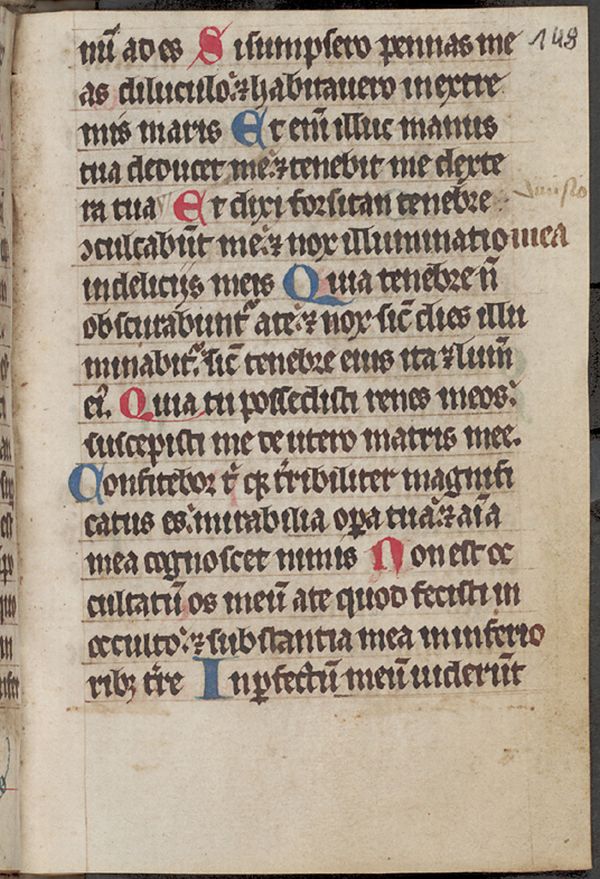 149
nū ad es Si sumpsero pennas me
as diluculo: ⁊ habitauero in extre
mis maris Et eni̅ illuc manus
tua deducet me: ⁊ tenebit me dexte
ra tua Et dixi forsitan tenebre
ↄculcabūt me: ⁊ nox illuminatio mea
in delicijs meis Quia tenebre n̄
obscurabunt᷑ a te: ⁊ nox sic̄ dies illu
minabit᷑: sic̄ tenebre eius ita ⁊ lum̄
ei᷒. Quia tu possedisti renes meos:
suscepisti me de utero matris mee.
Confitebor t̄ qꝫ t̄ribiliter magnifi
catus es: mirabilia oꝑa tua: ⁊ aīa
mea cognoscet nimis Non est oc
cultatū os meū a te quod fecisti in
occulto: ⁊ substantia mea in inferio
ribꝫ t̄re Inꝑfectū meū uiderūt